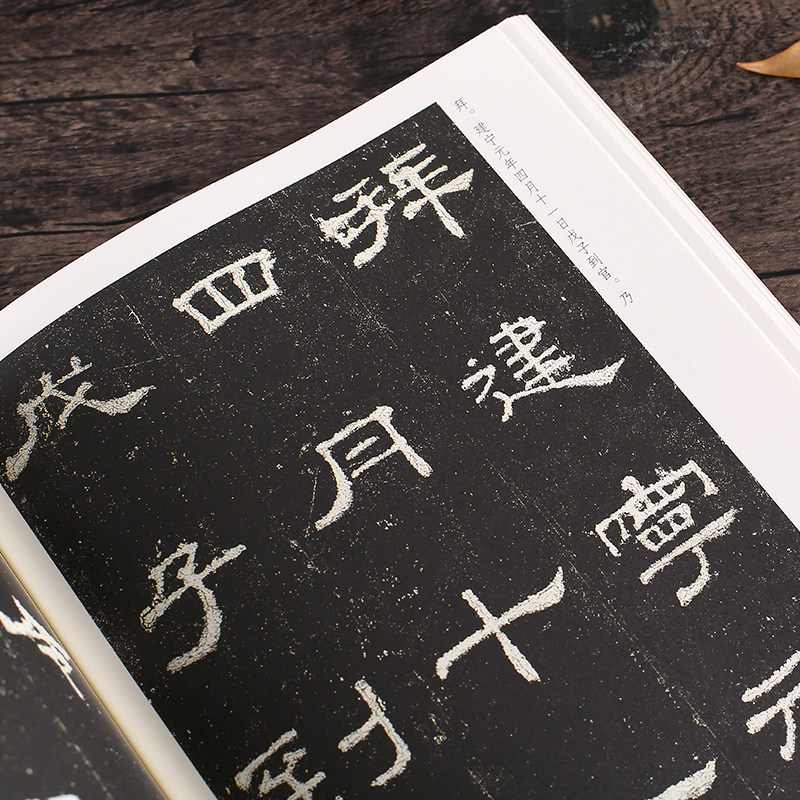 拜。建宁元年四月十一日戊子到官。乃
拜建寧元
四月十
戊子到